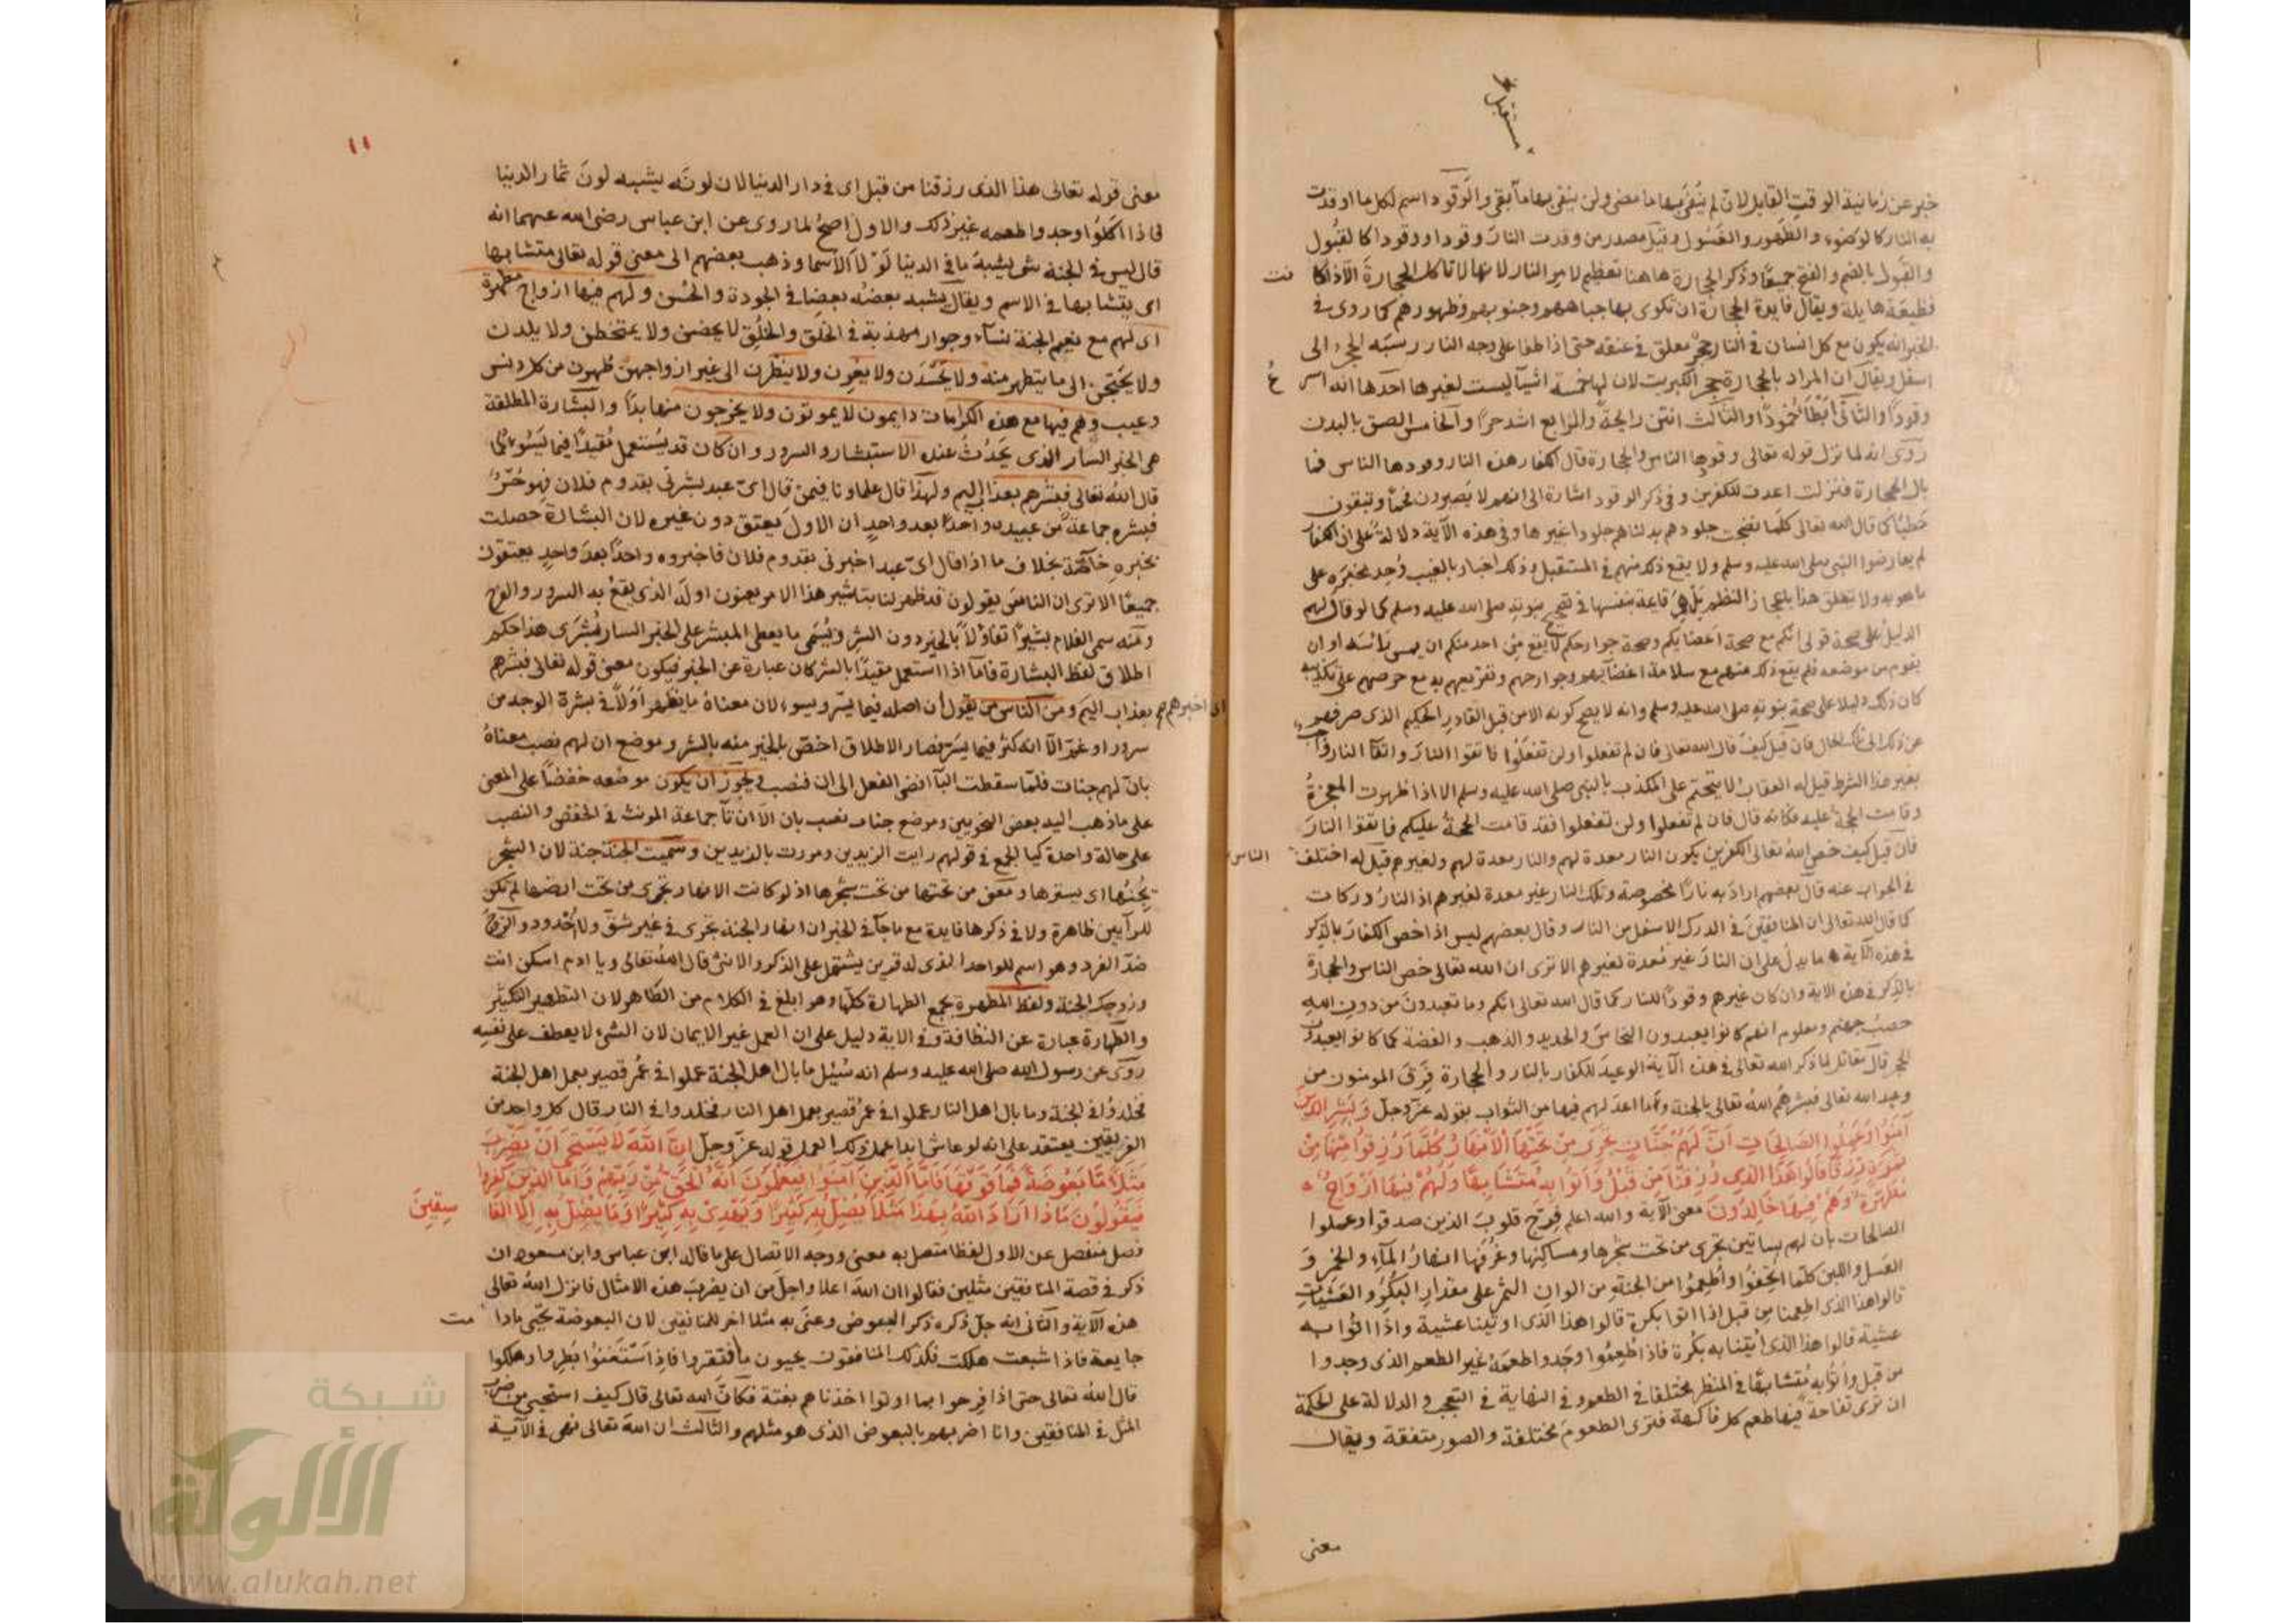 مستقبل
خبر عن زمانية الوقت القابل لان لم ينفى بها ما مضى ولن ينفى بها ما بقى والوقود اسم لكل ما اوقدت
به النار كالوضوء والطهور والغسول وقيل مصدر من وقدت النار وقودا ووقودا كالقبول
والقبول بالضم والفتح جميعا وذكر الحجارة هاهنا تعظيم لامر النار لانها لا تاكل الحجارة الا اذا كانت
فظيعة هايلة ويقال فايدة الحجارة ان تكوى بها جباههم وجنوبهم وظهورهم كما روى فى
الخبر انه يكون مع كل انسان فى النار حجر معلق فى عنقه حتى اذا طفا على وجه النار رسبه الحجر الى
اسفل ويقال ان المراد بالحجارة حجر الكبريت لان لها خمسة اشيآ ليست لغيرها احدها انه اسرع
وقودا والثانى ابطا خمودا والثالث انتن رايحة والرابع اشد حرا والخامس الصق بالبدن
روى انه لما نزل قوله تعالى وقودها الناس والحجارة قال الكفار هذه النار وقودها الناس فما
بال الحجارة فنزلت اعدت للكفرين وفى ذكر الوقود اشارة الى انهم لا يصيرون فحما وتبقون
حطبا كما قال الله تعالى كلما نضجت جلودهم بدلناهم جلودا غيرها وفى هذه الآية دلالة على ان الكفار
لم يعارضوا النبى صلى الله عليه وسلم ولا يقع ذلك منهم فى المستقبل وذلك اخبار بالغيب وجد مخبره على
ما هو به ولا تعلق هذا باعجاز النظم بل هى قاعة بنفسها فى تصحيح نبوته صلى الله عليه وسلم كما لو قال لهم
الدليل على صحة قولى انكم مع صحة اعضايكم وصحة جوارحكم لا يقع من احد منكم ان يمس رأسه او ان
يقوم من موضعه فلم يقع ذلك منهم مع سلامة اعضآيهم وجوارحهم وتقريعهم به مع حرصهم على تكذيبه
كان ذلك دليلا على صحة نبوته صلى الله عليه وسلم وانه لا يصح كونه الا من قبل القادر الحكيم الذى صرفهم
عن ذلك الى تلك الحال فان قيل كيف قال الله تعالى فان لم تفعلوا ولن تفعلوا فاتقوا النار واتقآ النار واجب
بغير هذا الشرط قيل له العقاب لا يتحتم على المكذب بالنبى صلى الله عليه وسلم الا اذا ظهرت المعجزة
وقامت الحجة عليه فكانه قال فان لم تفعلوا ولن تفعلوا فقد قامت الحجة عليكم فاتقوا النار
فان قيل كيف خص الله تعالى الكفرين بكون النار معدة لهم والنار معدة لهم ولغيرهم قيل له اختلف الناس
فى الجواب عنه قال بعضهم اراد به نارا مخصوصة وتلك النار غير معدة لغيرهم اذ النار دركات
كما قال الله تعالى ان المنافقين فى الدرك الاسفل من النار وقال بعضهم ليس اذا خص الكفار بالذكر
فى هذه الآية ما يدل على ان النار غير معدة لغيرهم الا ترى ان الله تعالى خص الناس والحجارة
بالذكر فى هذه الاية وان كان غيرهم وقودا للنار كما قال الله تعالى انكم وما تعبدون من دون الله
حصب جهنم ومعلوم انهم كانوا يعبدون النحاس والحديد والذهب والفضة كما كانوا يعبدون
الحجر قال مقاتل لما ذكر الله تعالى فى هذه الآية الوعيد للكفار بالنار والحجارة فرق المومنون من
وعيد الله تعالى فبشرهم الله تعالى بالجنة وما اعد لهم فيها من الثواب بقوله عز وجل وبشر الذين
آمنوا وعملوا الصالحات ان لهم جنات تجرى من تحتها الانهار كلما رزقوا منها من
ثمرة رزقا قالوا هذا الذى رزقنا من قبل واتوا به متشابها ولهم فيها ازواج
مطهرة وهم فيها خالدون معنى الآية والله اعلم فرح قلوب الذين صدقوا وعملوا
الصالحات بان لهم بساتين تجرى من تحت شجرها ومساكنها وغرفها انهار المآء والخمر و
العسل واللبن كلما اتحفوا واطعموا من الجنة من الوان الثمر على مقدار البكر والعشيات
قالوا هذا الذى اطعمنا من قبل اذا اتوا بكرة قالوا هذا الذى اوتينا عشية واذا اتوا به
عشية قالوا هذا الذى اتينا به بكرة فاذا طعموا وجدوا طعمه غير الطعم الذى وجدوا
من قبل واتوا به متشابها فى المنظر مختلفا فى الطعم وفى النهاية فى التعجب والدلالة على الحكمة
ان ترى تفاحة فيها طعم كل فاكهة فترى الطعوم مختلفة والصور متفقة ويقال
معنى
١١
معنى قوله تعالى هذا الذى رزقنا من قبل اى فى دار الدنيا لان لونه يشبه لون ثمار الدنيا
فاذا اكلوا وجدوا طعمه غير ذلك والاول اصح لما روى عن ابن عباس رضى الله عنهما انه
قال ليس فى الجنة شى يشبه ما فى الدنيا الا الاسما وذهب بعضهم الى معنى قوله تعالى متشابها
اى يتشابها فى الاسم ويقال يشبه بعضه بعضا فى الجودة والحسن ولهم فيها ازواج مطهرة
اى لهم مع نعيم الجنة نسآء وجوار مهذبة فى الخلق والخلق لا يحضن ولا يمتخطن ولا يلدن
ولا يحتجن الى ما يتطهر منه ولا يحسدن ولا يغرن ولا ينظرن الى غير ازواجهن طهرن من كل دنس
وعيب وهم فيها مع هذه الكرامات دايمون لا يموتون ولا يخرجون منها بدا والبشارة المطلقة
هى الخبر السار الذى يحدث عنده الاستبشار والسرور وان كان قد يستعمل مقيدا فيما يسوء كما
قال الله تعالى فبشرهم بعذاب اليم ولهذا قال علماونا فيمن قال اى عبد بشرنى بقدوم فلان فهو حر
فبشره جماعة من عبيده واحدا بعد واحد ان الاول يعتق دون غيره لان البشارة حصلت
بخبره خاصة بخلاف ما اذا قال اى عبد اخبرنى بقدوم فلان فاخبروه واحدا بعد واحد يعتقون
جميعا الا ترى ان الناس يقولون قد ظهر لنا تباشير هذا الامر يعنون اوله الذى يقع به السرور والفرح
ومنه سمى الغلام بشيرا تفاؤلا بالخير دون الشر ويسمى ما يعطى المبشر على الخبر السار بشرى هذا حكم
اطلاق لفظ البشارة فاما اذا استعمل مقيدا بالشر كان عبارة عن الخبر فيكون معنى قوله تعالى فبشرهم
اى اخبرهم بعذاب اليم ومن الناس من يقول ان اصله فيما يسر ويسوء لان معناه ما يظهر اولا فى بشرة الوجه من
سرور او غم الا انه كثر فيما يسر فصار الاطلاق اخص بالخير منه بالشر وموضع ان لهم نصب معناه
بان لهم جنات فلما سقطت البآ افضى الفعل الى ان فنصب ويجوز ان يكون موضعه خفضا على المعنى
على ما ذهب اليه بعض النحويين وموضع جنات نصب بان الا ان تآ جماعة المونث فى الخفض والنصب
على حالة واحدة كيا الجمع فى قولهم رايت الزيدين ومررت بالزيدين وسميت الجنة جنة لان الشجر
يجنها اى يسترها ومعنى من تحتها من تحت شجرها اذ لو كانت الانهار تجرى من تحت ارضها لم تكن
للرآيين ظاهرة ولا فى ذكرها فايدة مع ما جآ فى الخبر ان انهار الجنة تجرى فى غير شق ولا اخدود والزوج
ضد الفرد وهو اسم للواحد الذى له قرين يشتمل على الذكر والانثى قال الله تعالى ويا ادم اسكن انت
وزوجك الجنة ولفظ المطهرة يجمع الطهارة كلها وهو ابلغ فى الكلام من الطاهر لان التطهير التكثير
والطهارة عبارة عن النظافة وفى الاية دليل على ان العمل غير الايمان لان الشىء لا يعطف على نفسه
روى عن رسول الله صلى الله عليه وسلم انه سئل ما بال اهل الجنة عملوا فى عمر قصير بعمل اهل الجنة
فخلدوا فى الجنة وما بال اهل النار عملوا فى عمر قصير بعمل اهل النار فخلدوا فى النار قال كل واحد من
الفريقين يعتقد على انه لو عاش ابدا عمل ذلك العمل قوله عز وجل ان الله لا يستحى ان يضرب
مثلا ما بعوضة فما فوقها فاما الذين آمنوا فيعلمون انه الحق من ربهم واما الذين كفروا
فيقولون ماذا اراد الله بهذا مثلا يضل به كثيرا ويهدى به كثيرا وما يضل به الا الفا سقين
فصل منفصل عن الاول لفظا متصل به معنى ووجه الاتصال على ما قاله ابن عباس وابن مسعود ان
ذكر فى قصة المنافقين مثلين فقالوا ان الله اعلا واجل من ان يضرب هذه الامثال فانزل الله تعالى
هذه الآية والثانى انه جل ذكره ذكر البعوض وعنى به مثلا اخر للمنافقين لان البعوضة تحيى ما دامت
جايعة فاذا شبعت هلكت فكذلك المنافقون يحيون ما افتقروا فاذا استغنوا بطروا وهلكوا
قال الله تعالى حتى اذا فرحوا بما اوتوا اخذناهم بغتة فكان الله تعالى قال كيف استحيى من ضرب
المثل فى المنافقين وانا اضربهم بالبعوض الذى هو مثلهم والثالث ان الله تعالى نهى فى الآية
شبكة
الألوكة
www.alukah.net